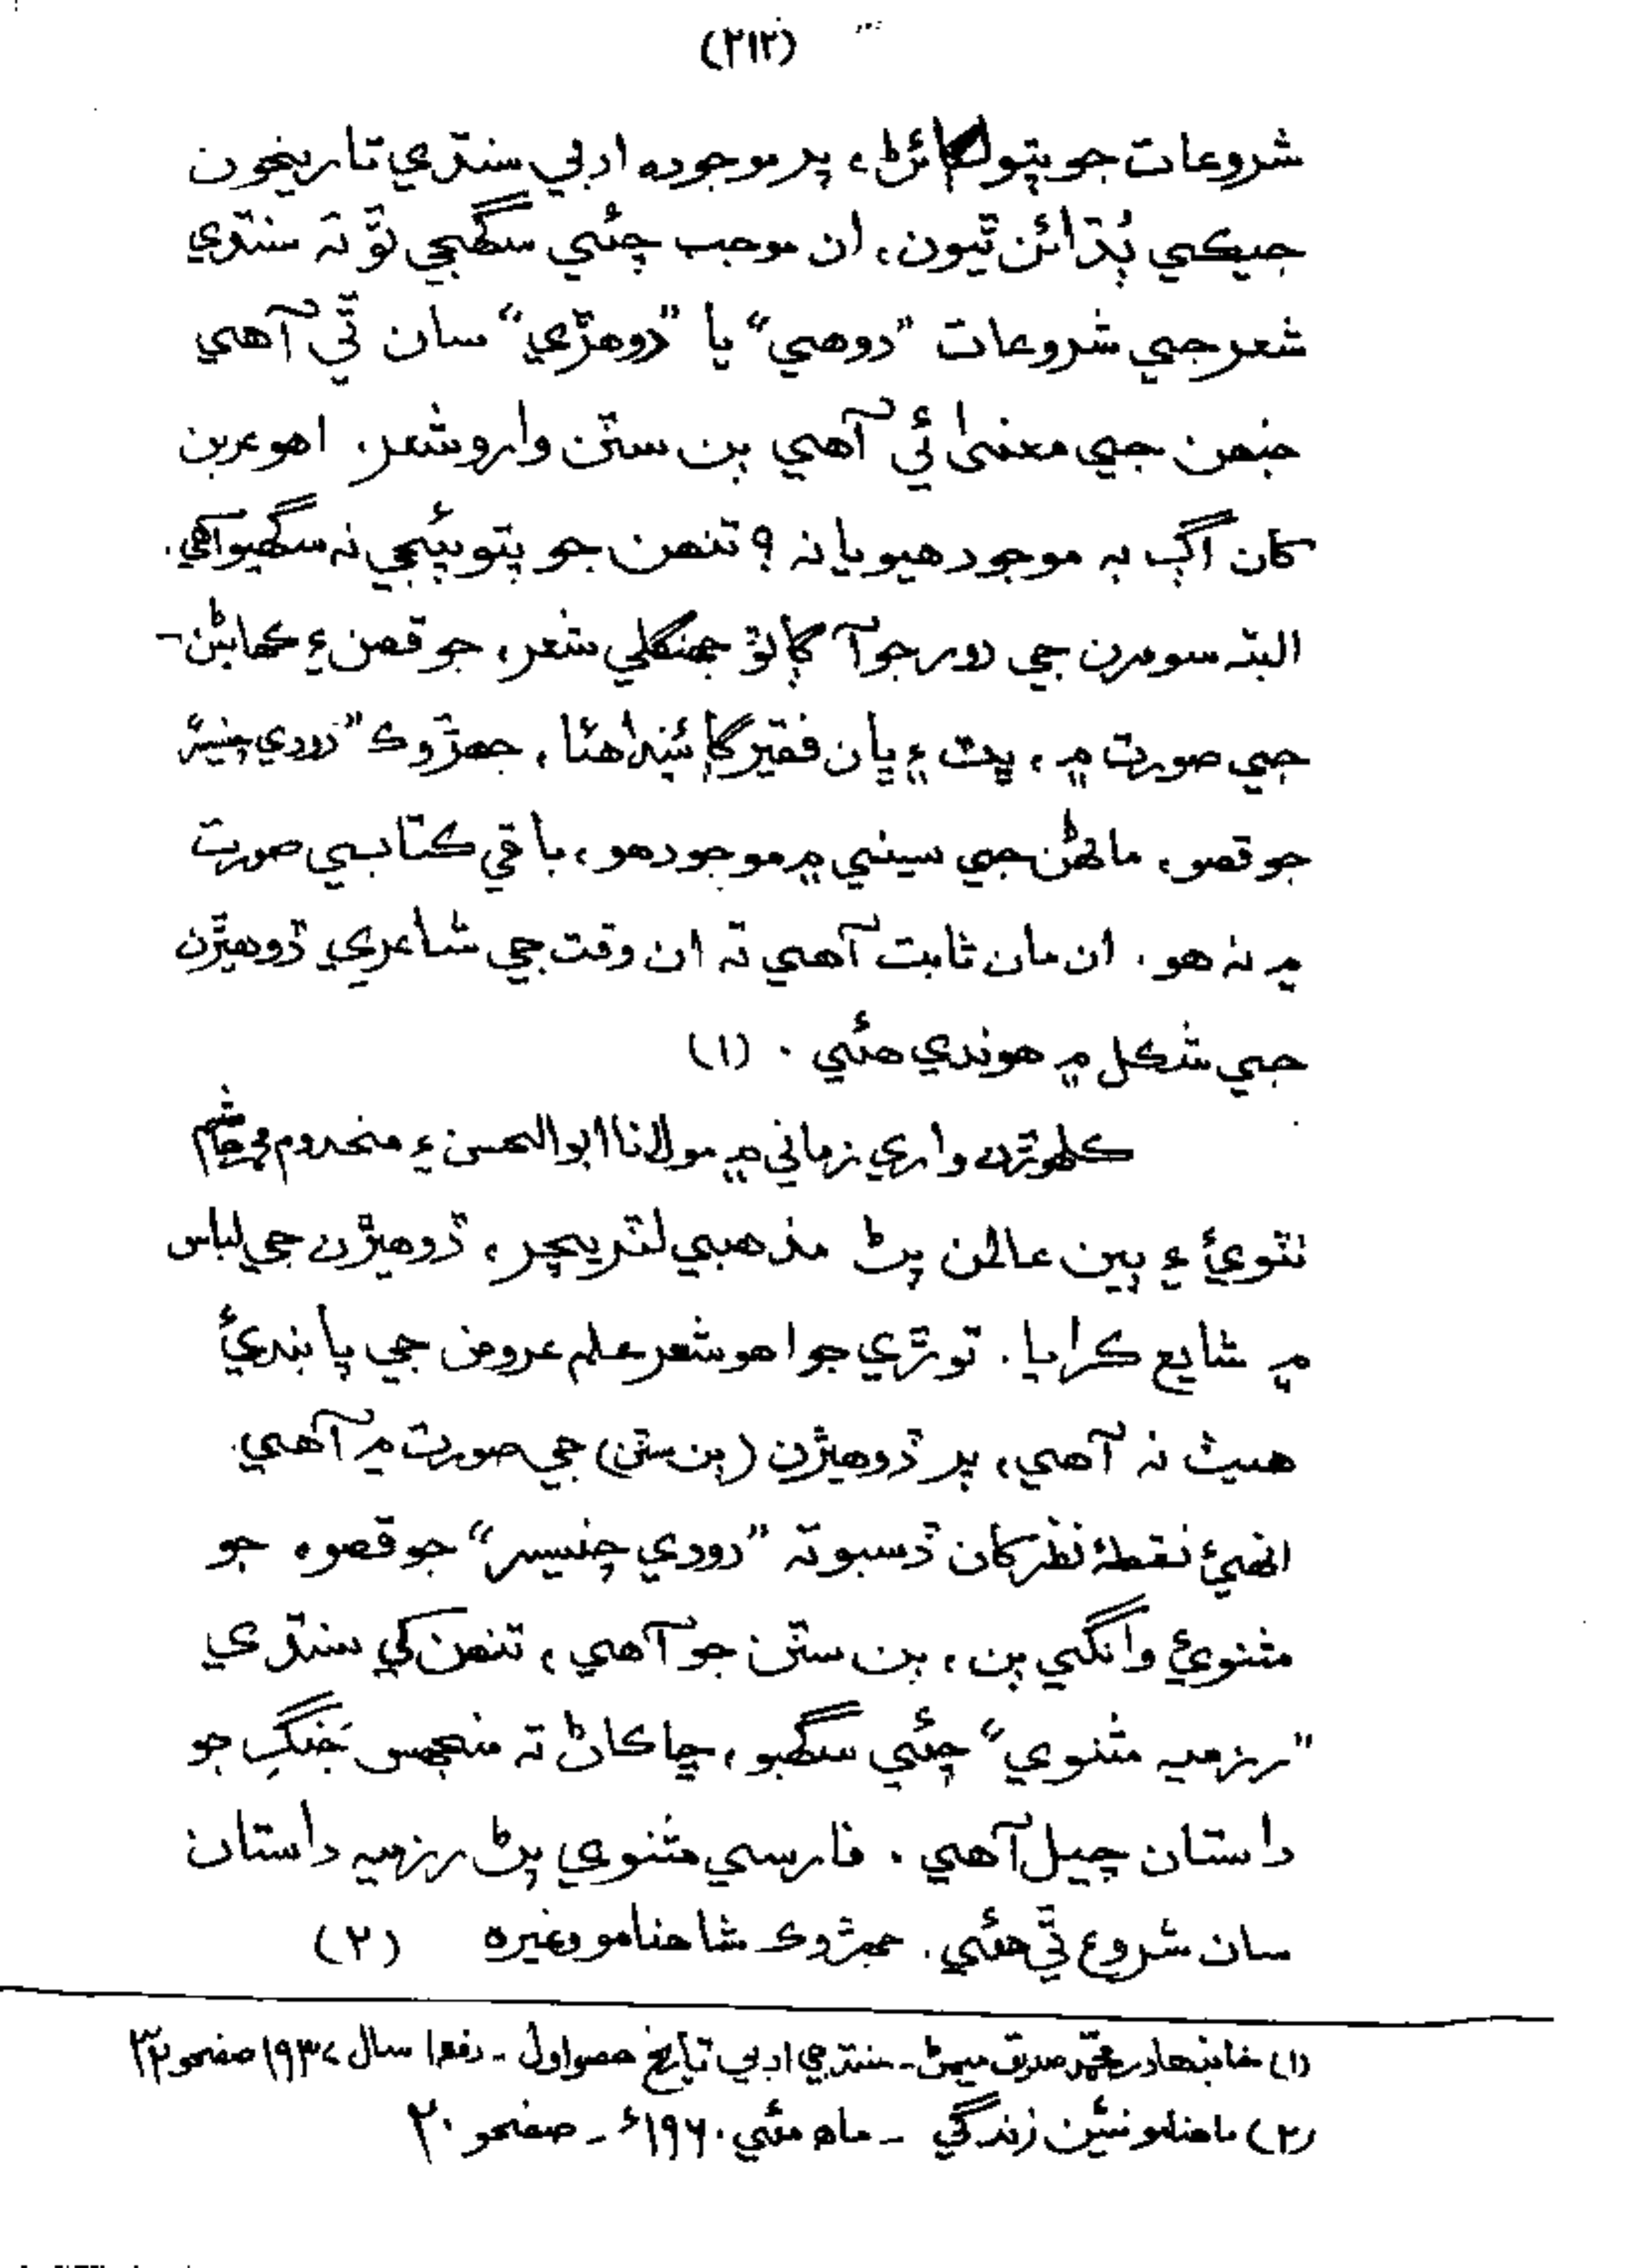 (٢١٢)
شروعات جو پتو لڳائڻ، پر موجوده ادبي سنڌي تاريخون
جيڪي ٻڌائن ٿيون، ان موجب چئي سگهجي ٿو تہ سنڌي
شعر جي شروعات ”دوهي“ يا ”ڏوهڙي“ سان ٿي آهي
جنهن جي معنيٰ ئي آهي ٻن سٽن وارو شعر. اهو عربن
کان اڳ بہ موجود هيو يا نہ؟ تنهن جو پتو پئجي نہ سگهيو آهي.
البتہ سومرن جي دور جو آڳاٽو جهنگلي شعر، جو قصن ۽ ڪهاڻين-
جي صورت ۾، ڀٽ ۽ ڀان فقير ڳائيندا هئا، جهڙوڪ ”دودي چنيسر“
جو قصو، ماڻهن جي سيني ۾ موجود هو، باقي ڪتابي صورت
۾ نہ هو. ان مان ثابت آهي تہ ان وقت جي شاعري ڏوهيڙن
جي شڪل ۾ هوندي هئي. (١)
ڪلهوڙن واري زماني ۾ مولانا ابوالحسن ۽ مخدوم محمد هاشم
ٺٽويءَ ۽ ٻين عالمن پڻ مذهبي لٽريچر، ڏوهيڙن جي لباس
۾ شايع ڪرايا. توڙي جو اهو شعر علم عروض جي پابنديءَ
هيٺ نہ آهي، پر ڏوهيڙن (ٻن سٽن) جي صورت ۾ آهي.
انهيءَ نقطۂ نظر کان ڏسبو تہ ”دودي چنيسر“ جو قصو، جو
مثنويءَ وانگي ٻن، ٻن سٽن جو آهي، تنهن کي سنڌي
”رزميہ مثنوي“ چئي سگهبو، ڇاڪاڻ تہ منجهس جَنگِ جو
داستان چيل آهي. فارسي مثنوي پڻ رزميہ داستان
سان شروع ٿي هئي. جهڙوڪ شاهنامو وغيره (٢)
(١) خانبهادر محمد صديق ميمڻ - سنڌ جي ادبي تاريخ حصو اول - دفعو ١ سال ١٩٣٧ صفحو ٣٢
(٢) ماهنامو نئين زندگي - ماه مئي ١٩٦٠ع - صفحو ٢٠